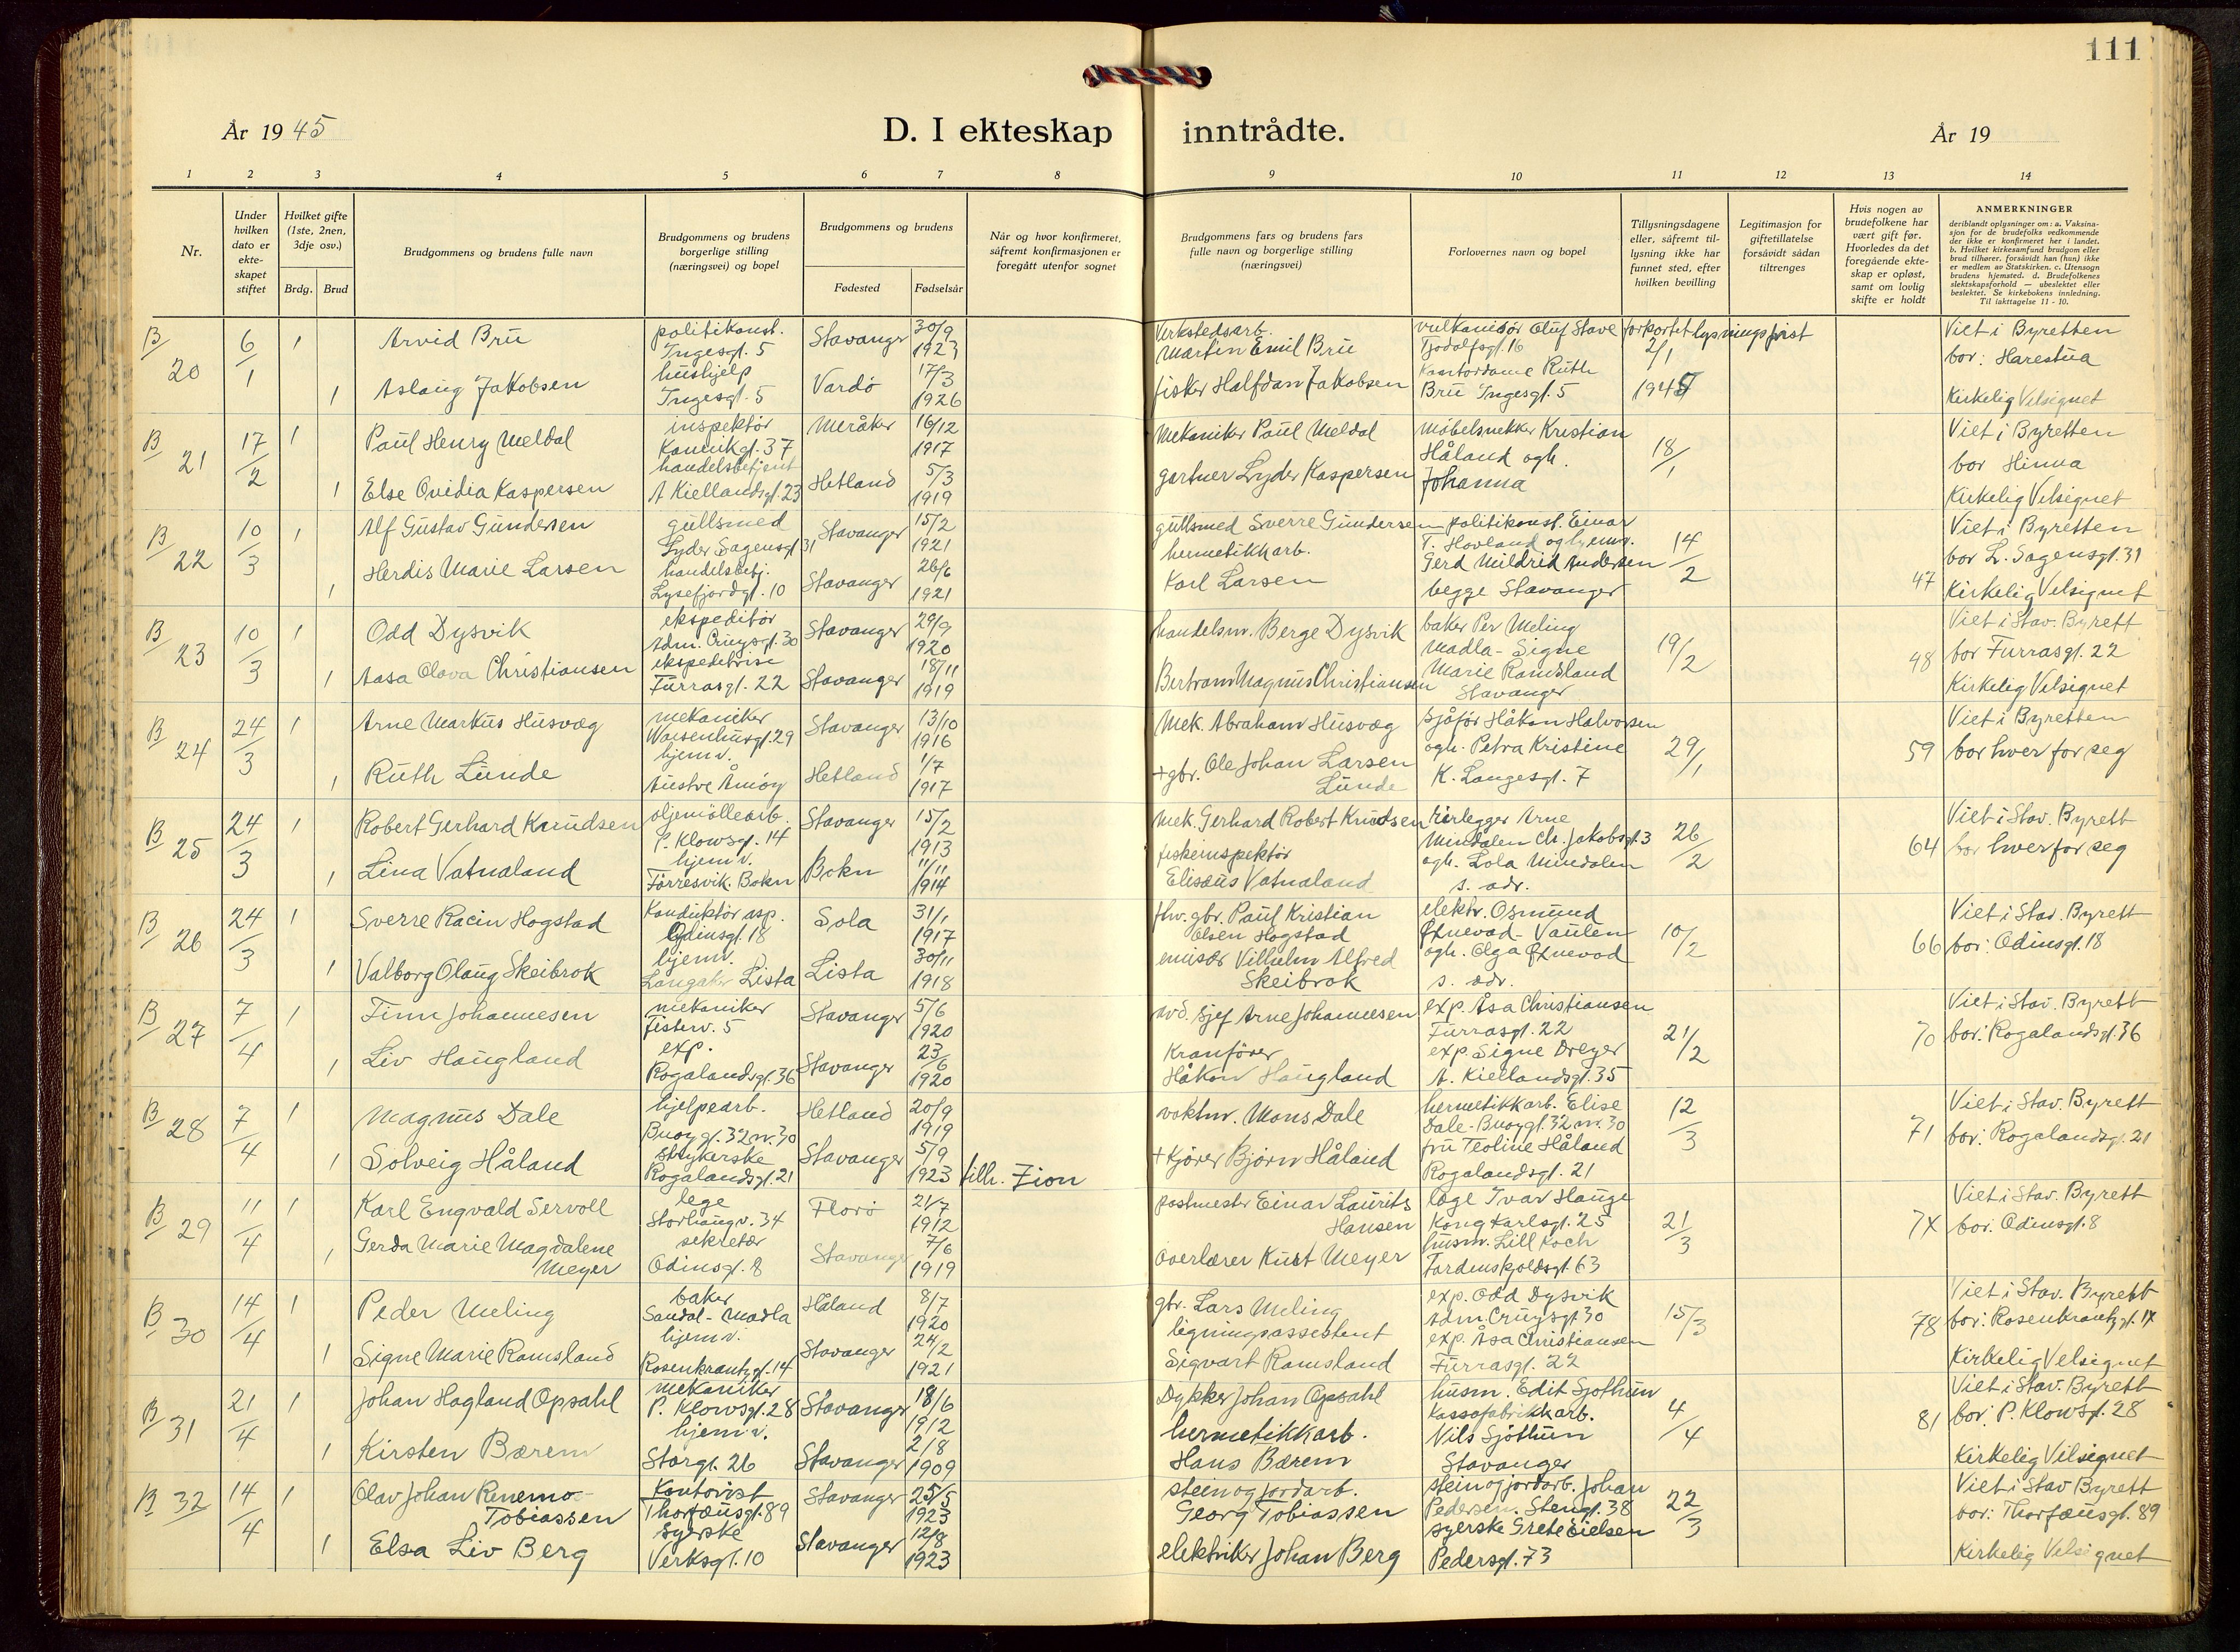 111
År 19 45
D. I ekteskap inntrådte.
År 19
1 2 3 4 5 6 7 8 9 10 11 12 13 14
Nr.
Under hvilken dato er ekte- skapet stiftet
Hvilket gifte (1ste, 2nen, 3dje osv.)
Brdg. Brud
Brudgommens og brudens fulle navn
Brudgommens og brudens borgerlige stilling (næringsvei) og bopel
Brudgommens og brudens
Fødested Fødselsår
Når og hvor konfirmeret, såfremt konfirmasjonen er foregått utenfor sognet
Brudgommens fars og brudens fars fulle navn og borgerlige stilling (næringsvei)
Forlovernes navn og bopel
Tillysningsdagene eller, såfremt til- lysning ikke har funnet sted, efter hvilken bevilling
Legitimasjon for giftetillatelse forsåvidt sådan tiltrenges
Hvis nogen av brudefolkene har vært gift før. Hvorledes da det foregående ekte- skap er opløst, samt om lovlig skifte er holdt
ANMERKNINGER
deriblandt oplysninger om: a. Vaksina- sjon for de brudefolks vedkommende der ikke er konfirmeret her i landet. b. Hvilket kirkesamfund brudgom eller brud tilhører, forsåvidt han (hun) ikke er medlem av Statskirken. c. Utensogn brudens hjemsted. d. Brudefolkenes slektskapsforhold — ubeslektet eller beslektet. Se kirkebokens innledning. Til iakttagelse 11 - 10.
B/20 6/1 1 Arvid Brü politikonst. Ingesgt. 5 Stavanger 30/9 1923
1 Aslaug Jakobsen hushjelp Ingesgt. 5 Vardö 17/3 1926
Verkstedsarb. Martin Emil Brü
fisker Halfdan Jakobsen
vulkanisör Oluf Stave Tjodolfsgt. 16
Kontordame Ruth Brü Ingesgt. 5
forkortet lysningsfrist 2/1 1945
Viet i Byretten
bor: Harestua
Kirkelig Velsignet
B/21 17/2 1 Paul Henry Meldal inspektör Kannikgt. 37 Meråker 16/12 1917
1 Else Ovidia Kaspersen handelsbetjent A Kiellandsgt. 23 Hetland 5/3 1919
Mekaniker Paul Meldal
gartner Lyder Kaspersen
möbelsnekker Kristian Håland ogh. Johanna
18/1
Viet i Byretten
bor Hinna
Kirkelig Velsignet
B/22 10/3 1 Alf Gustav Gundersen gullsmed Lyder Sagensgt 31 Stavanger 15/2 1921
1 Herdis Marie Larsen handelsbetj. Lysefjordgt. 10 Stavanger 26/6 1921
gullsmed Sverre Gundersen
hermetikkarb. Karl Larsen
politikonst. Einar T. Hovland og
Gerd Mildrid Andersen
begge Stavanger
14/2
47
Viet i Byretten
bor L. Sagensgt. 31
Kirkelig Velsignet
B/23 10/3 1 Odd Dysvik ekspeditör Adm. Cruysgt. 30 Stavanger 29/9 1920
1 Aasa Olava Christiansen ekspeditrise Furrasgt. 22 Stavanger 18/11 1919
handelsm. Berge Dysvik
Bertram Magnus Christiansen
baker Per Meling Madla - Signe Marie Ramsland Stavanger
19/2
48
Viet i Stav. Byrett
bor Furrasgt. 22
Kirkelig Velsignet
B/24 24/3 1 Arne Markus Husvæg mekaniker Waisenhusgt. 29 Stavanger 13/10 1916
1 Ruth Lunde hjemv. Austre Åmöy Hetland 1/7 1917
Mek. Abraham Husvæg
+ gbr. Ole Johan Larsen Lunde
sjåför Håkon Halvorsen ogh. Petra Kristine K. Langesgt. 7
29/1
59
Viet i Byretten
bor hver for seg
B/25 24/3 1 Robert Gerhard Knudsen oljemöllearb. P. Klowsgt. 14 Stavanger 15/2 1913
1 Lina Vatnaland hjemv. Förresvik. Bokn Bokn 11/11 1914
Mek. Gerhard Robert Knudsen
fiskeinspektör Elisæus Vatnaland
rörlegger Arne Mindalen Ch. Jakobsgt. 3
ogh. Lola Mindalen s. adr.
26/2
64
Viet i Stav. Byrett
bor hver for seg
B/26 24/3 1 Sverre Racin Hogstad Konduktör asp. Odinsgt. 18 Sola 31/1 1917
1 Valborg Olaug Skeibrok hjemv. Langaker Lista Lista 30/11 1918
fhv. gbr. Paul Kristian Olsen Hogstad
emisær Vilhelm Alfred Skeibrok
elektr. Osmund Øxnevad - Vaulen
ogh. Olga Øxnevad s. adr.
10/2
66
Viet i Stav. Byrett
bor: Odinsgt. 18
B/27 7/4 1 Finn Johannesen mekaniker Fisterv. 5 Stavanger 5/6 1920
1 Liv Haugland exp. Rogalandsgt. 36 Stavanger 23/6 1920
avd. sjef Arne Johannesen
Kranförer Håkon Haugland
exp. Åsa Christiansen Furrasgt. 22
exp. Signe Dreyer A. Kiellandsgt. 35
21/2
70
Viet i Stav. Byrett
bor: Rogalandsgt. 36
B/28 7/4 1 Magnus Dale hjelpearb. Buøygt. 32 nr. 30 Hetland 20/9 1919
1 Solveig Håland strykerske Rogalandsgt. 21 Stavanger 5/9 1923 tilh. Zion
vaktm. Mons Dale
+ kjörer Björn Håland
hermetikkarb. Elise Dale - Buøygt. 32 nr. 30
fru Teoline Håland Rogalandsgt. 21
12/3
71
Viet i Stav. Byrett
bor: Rogalandsgt. 21
B/29 11/4 1 Karl Engvald Servoll lege Storhaugv. 34 Florö 21/7 1912
1 Gerda Marie Magdalene Meyer sekretær Odinsgt. 8 Stavanger 7/6 1919
postmester Einar Laurits Hansen
Overlærer Kurt Meyer
lege Ivar Hauge Kong Karlsgt. 25
husm. Lill Koch Tordenskjoldsgt. 63
21/3
74
Viet i Stav. Byrett
bor: Odinsgt. 8
B/30 14/4 1 Peder Meling baker Sandal - Madla Håland 8/7 1920
1 Signe Marie Ramsland hjemv. Rosenkrantzgt. 14 Stavanger 24/2 1921
gbr. Lars Meling
ligningsassistent Sigvart Ramsland
exp. Odd Dysvik Adm. Cruysgt 30
exp. Åsa Christiansen Furrasgt. 22
15/3
78
Viet i Stav. Byrett
bor: Rosenkrantzgt. 14
Kirkelig Velsignet
B/31 21/4 1 Johan Hagland Opsahl mekaniker P. Klowsgt. 28 Stavanger 18/6 1912
1 Kirsten Bærem hjemv. Storgt. 26 Stavanger 2/8 1909
Dykker Johan Opsahl
hermetikkarb. Hans Bærem
husm. Edit Sjöthun
Kassafabrikkarb. Nils Sjöthun Stavanger
4/4
81
Viet i Stav. Byrett
bor: P. Klowsgt. 28
Kirkelig Velsignet
B 32 14/4 1 Olav Johan Renemo- Tobiassen Kontorist Thorfæusgt. 89 Stavanger 25/5 1923
1 Elsa Liv Berg syerske Verksgt. 10 Stavanger 12/8 1923
stein og jordarb. Georg Tobiassen
elektriker Johan Berg
stein og jordarb. Johan Pedersen. Stengt. 38
syerske Grete Eielsen Pedersgt. 73
22/3
Viet i Stav Byrett
bor: Thorfæusgt. 89
Kirkelig Velsignet